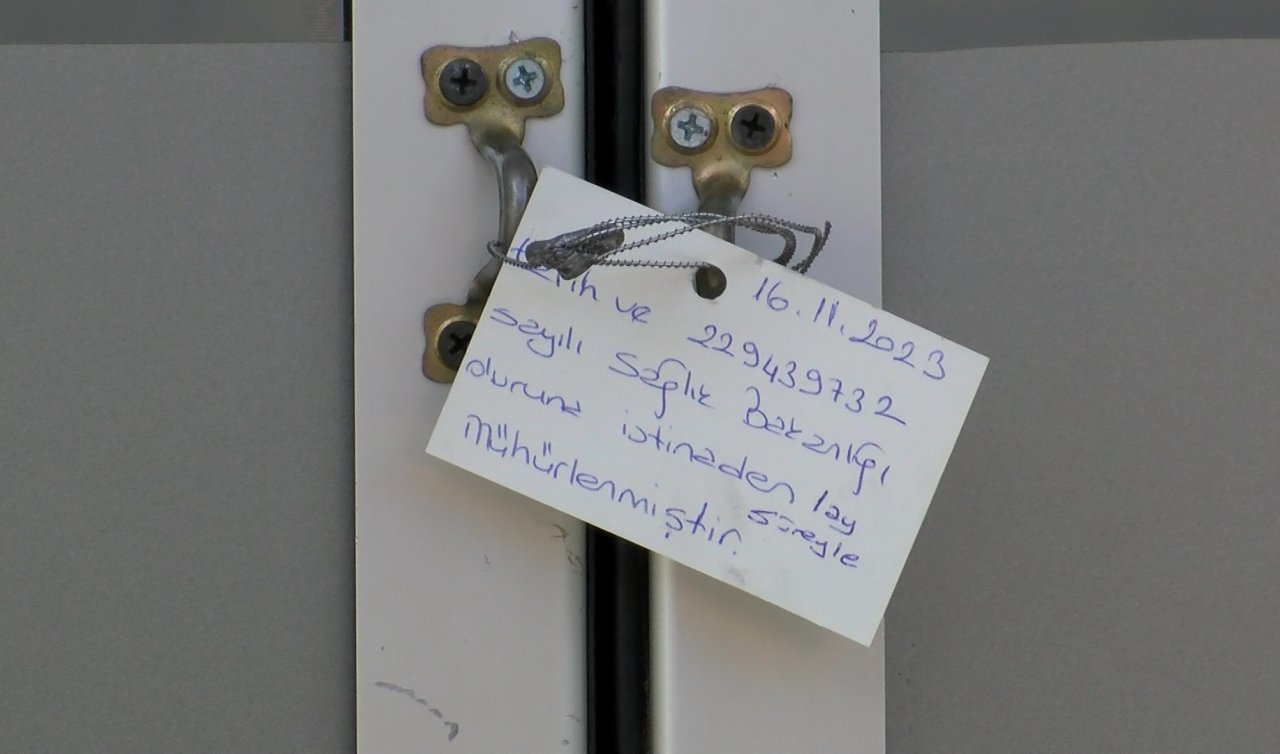 16.11.2023
tarih ve 229439732
sayılı Sağlık Bakanlığı
oluruna istinaden 1ay
süreyle
Mühürlenmiştir.